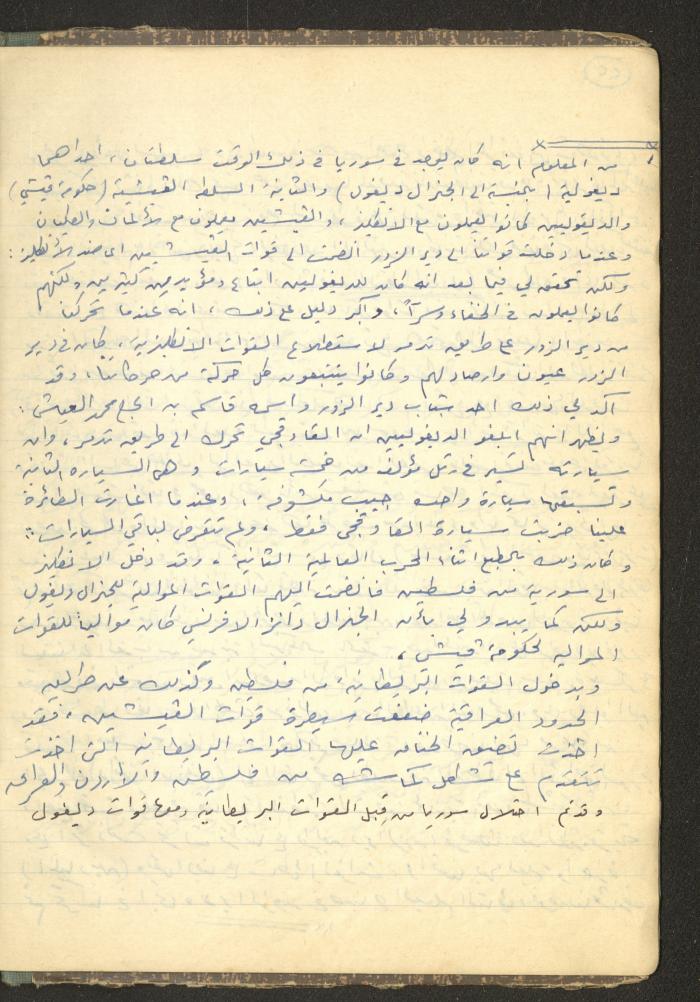 (٢٢)
من المعلوم انه كان يوجد في سوريا في ذلك الوقت سلطتان، احداهما
ديغولية (بالنسبة الى الجنرال ديغول) والثانية السلطه الفيشية (حكومة فيشي)
والديغوليين كانوا يعملون مع الانكليز، والفيشيين يعملون مع الألمان والطليان
وعندما دخلت قواتنا الى دير الزور انضمت الى قوات الفيشيين اى ضد الانكليز:
ولكن تحقق لي فيما بعد انه كان للديغوليين اتباع ومؤيدين كثيرين ولكنهم
كانوا يعملون في الخفاء وسراً، واكبر دليل على ذلك، انه عندما تحركنا
من دير الزور على طريق تدمر لاستطلاع القوات الانكليزية، كان في دير
الزور عيون وارصاد لهم وكانوا يتتبعون كل حركة من حركاتنا، وقد
اكد لي ذلك احد شباب دير الزور واسمه قاسم بن الحج محمد العيش:
ويظهر انهم ابلغو الديغوليين ان القاوقجي تحرك الى طريق تدمر، وان
سيارته تسير في رتل مؤلف من خمسة سيارات و هي السياره الثانية
وتسبقها سيارة واحده جيب مكشوفة، وعندما اغارت الطائرة
علينا ضربت سيارة القاوقجي فقط، ولم تتعرض لباقي السيارات:
وكان ذلك بالطبع اثناء الحرب العالمية الثانية، وقد دخل الانكليز
الى سورية من فلسطين فانضمت اليهم القوات الموالية للجنرال ديغول
ولكن كما يبدو لي بأن الجنرال دانز الافرنسي كان موالياً للقوات
الموالية لحكومة فيشي،
وبدخول القوات البريطانية من فلسطين وكذلك عن طريق
الحدود العراقية ضعفت سيطرة قوات الفيشيين، فقد
اخذت تضيق الخناق عليها القوات البريطانية التي اخذت
تتقدم على شكل كماشة من فلسطين والاردن والعراق
وقد تم احتلال سوريا من قِبل القوات البريطانية ومعها قوات ديغول